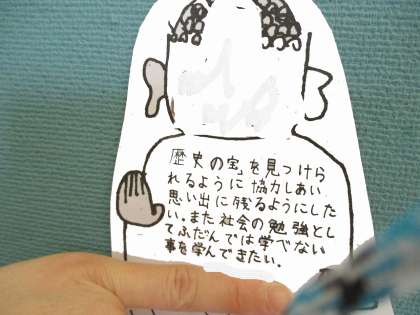 歴史の宝」を見つけら
れるように協力しあい
思い出に残るようにした
い。また社会の勉強とし
てふだんでは学べない
事を学んできたい。